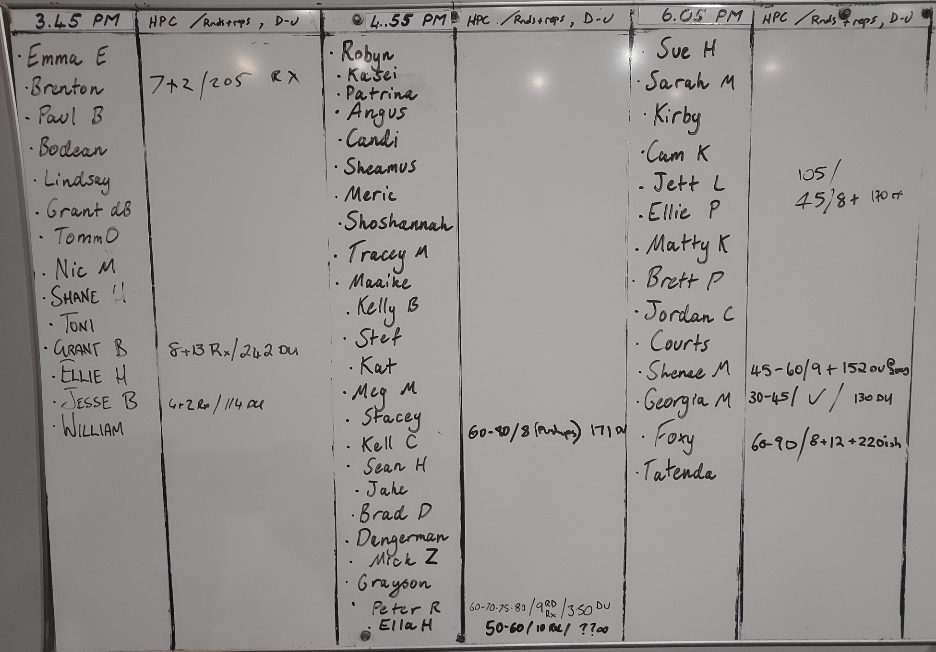 3.45 PM HPC /Rnds+reps, D-U
· Emma E
· Brenton 7+2/205 RX
· Paul B
· Bodean
· Lindsay
· Grant dB
· TommO
· Nic M
· SHANE H
· TONI
· GRANT B 8+13 Rx/242 DU
· ELLIE H
· JESSE B 4+2 Rx/114 DU
· WILLIAM
4.55 PM HPC /Rnds+reps, D-U
· Robyn
· Kasei
· Patrina
· Angus
· Candi
· Sheamus
· Meric
· Shoshannah
· Tracey M
· Maaike
· Kelly B
· Stef
· Kat
· Meg M
· Stacey
· Kell C 60-80/8 (Pushups) 171 DU
· Sean H
· Jake
· Brad D
· Dengerman
· Mick Z
· Grayson
· Peter R 60-70-75-80/9 RD RX/350 DU
· Ella H 50-60/10 Rd/ ??00
6.05 PM HPC /Rnds+reps, D-U
· Sue H
· Sarah M
· Kirby
· Cam K
· Jett L 105/
· Ellie P 45/8+ 170
· Matty K
· Brett P
· Jordan C
· Courts
· Shenae M 45-60/9+152 DU
· Georgia M 30-45/ ✓ / 130 DU
· Foxy 60-90/8+12+220ish
· Tatenda